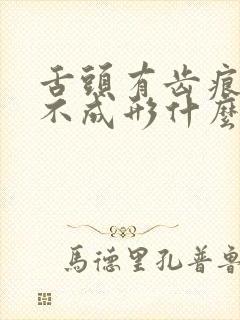 舌頭有齿痕
不成形什麼
馬德里孔普魯